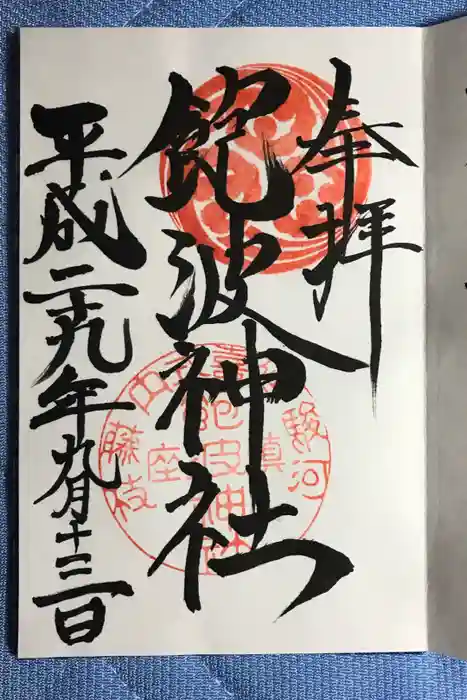 奉拝
飽波神社
平成二十九年九月十三日
駿河
藤枝
鎮座
飽波神社